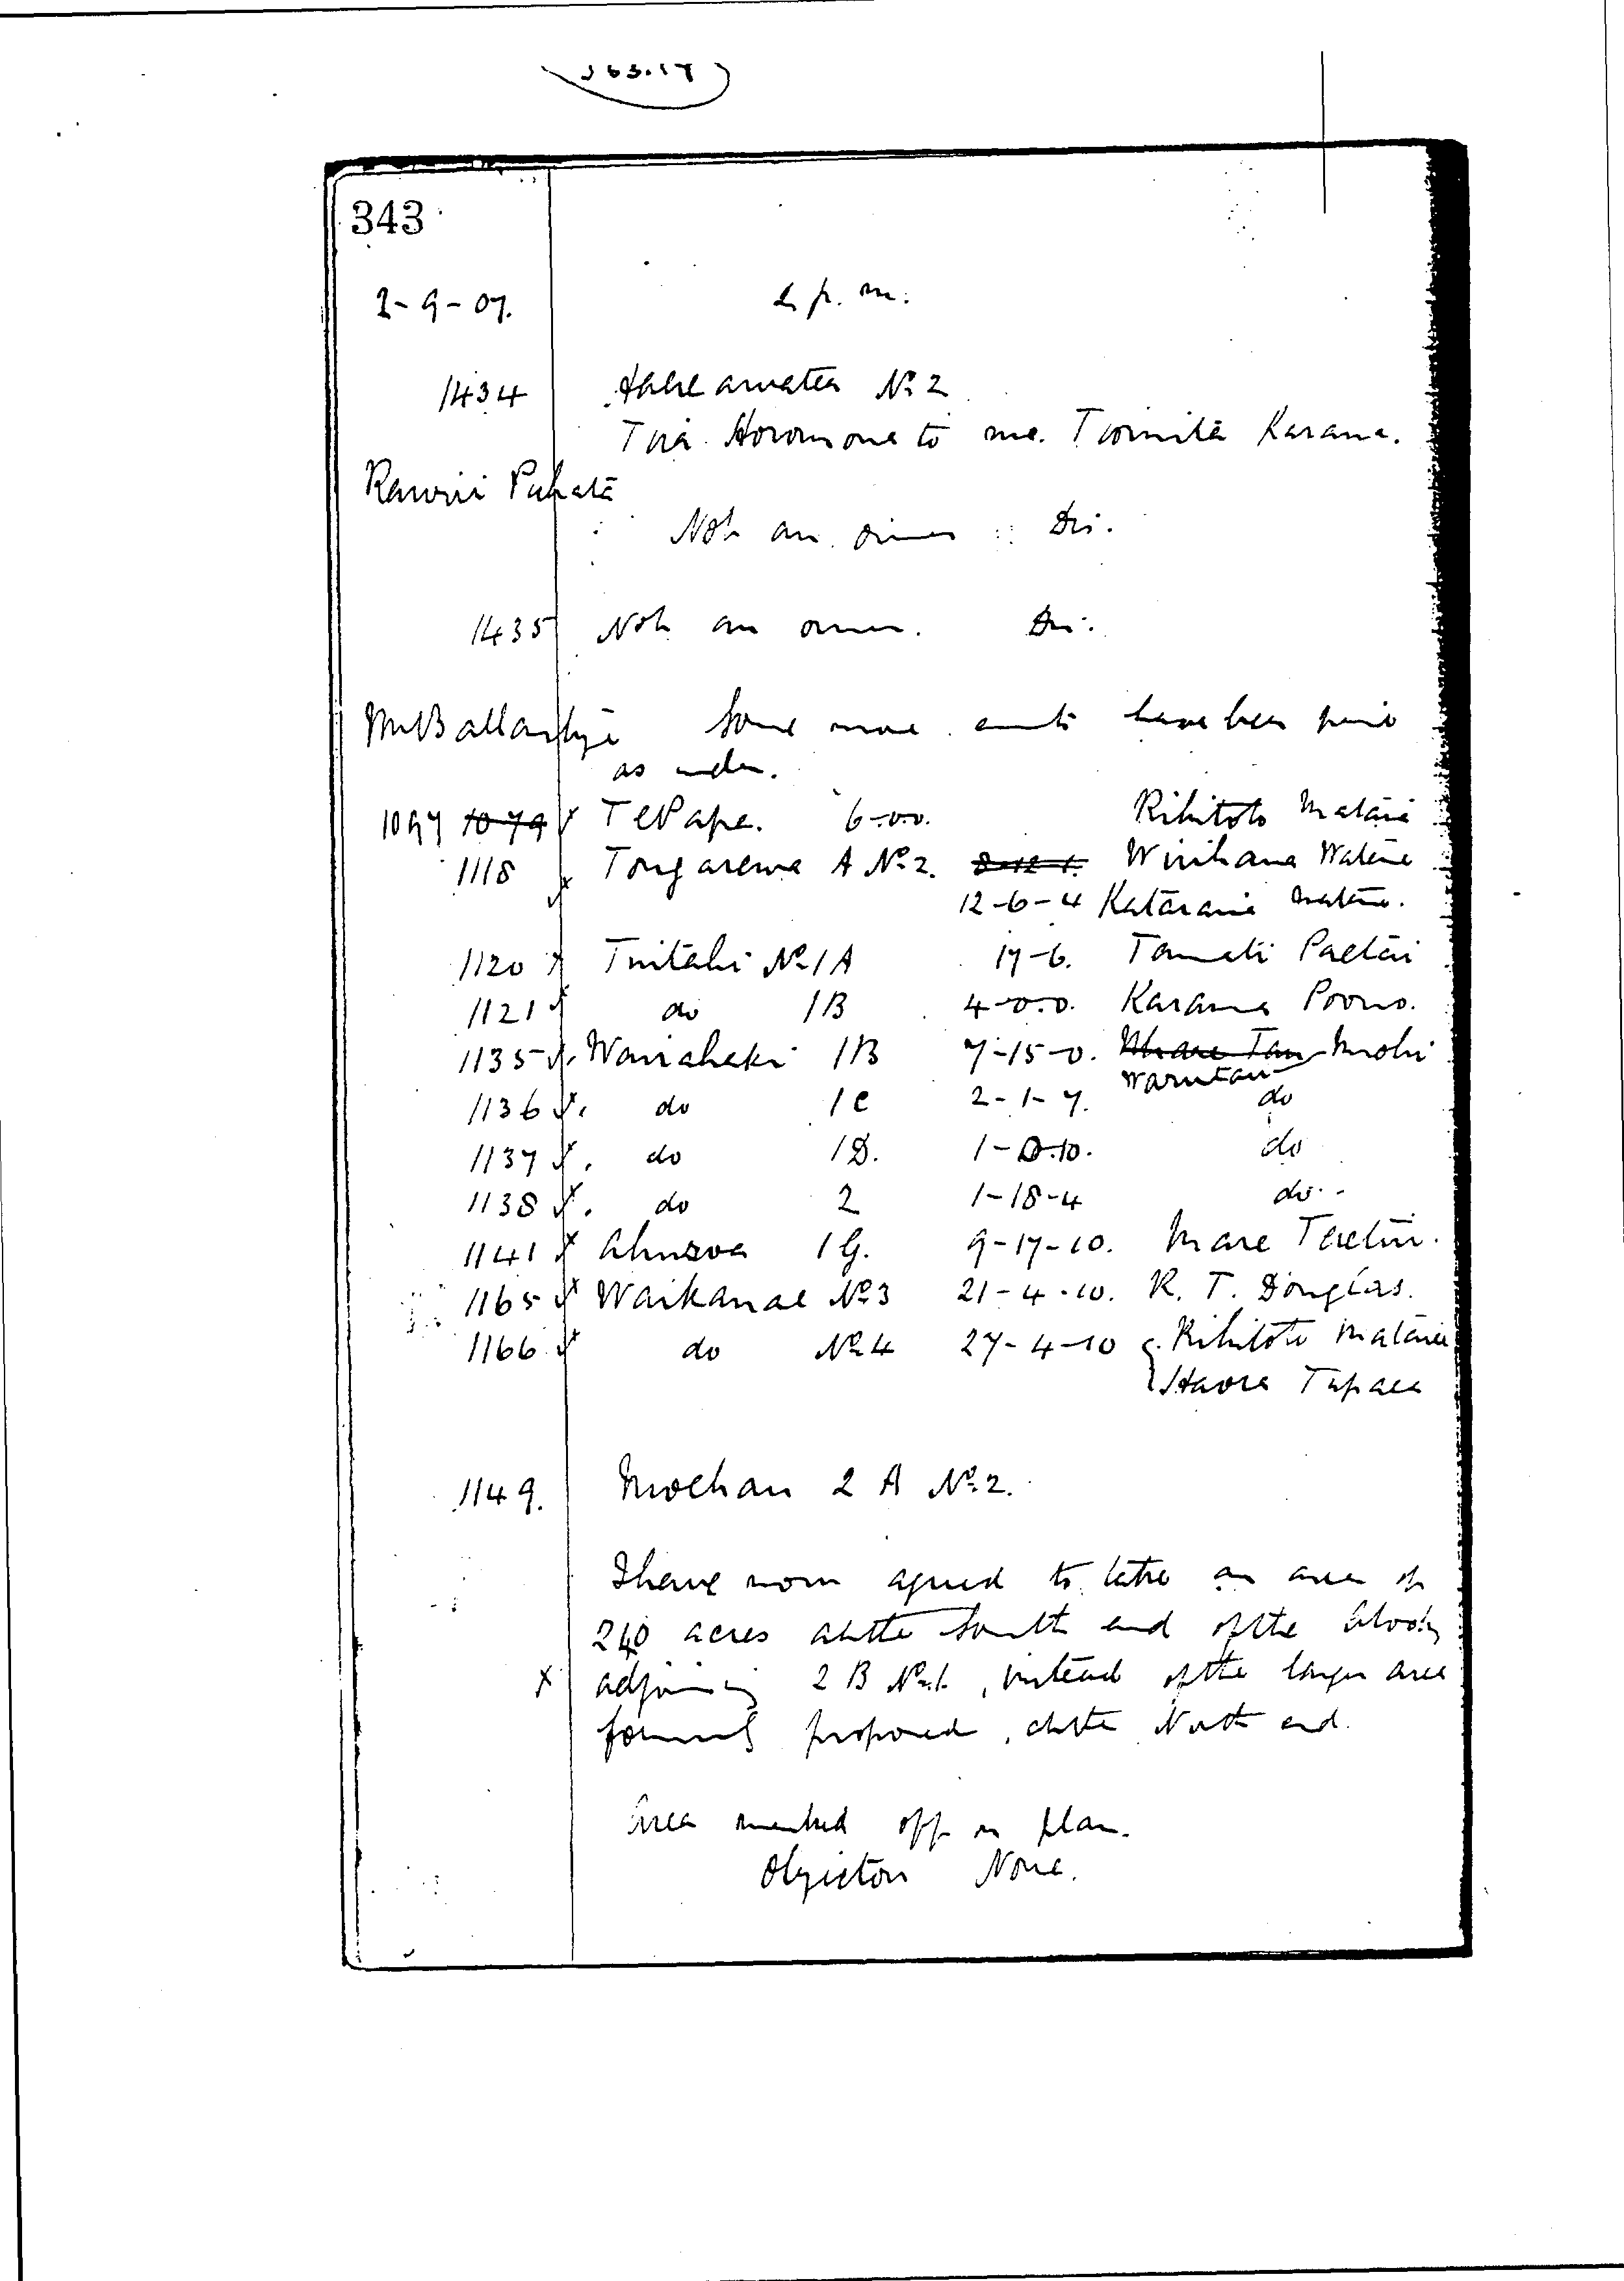 343
2-9-07. 2 p. m.
1434 Hakeamatea No. 2
Tua Horomona to me. Tiomila Karana.
Rawiri Puhata
Not an owner :: Dis.
1435 Not an owner. Dis.
Mr Ballantyne Some more amts have been paid
as under.
1097 1079 x Te Pape. 6-0-0. Rihitoto Mataia
1118 x Tongarewa A No. 2. Wirihana Watene
12-6-4 Katarina Watene.
1120 x Tuitahi No. 1A 17-6. Tamati Paetai
1121 x do 1B 4-0-0. Karama Poono.
1135 x. Wairaheke 1B 7-15-0. Whare Tau Mohi
Warutau
1136 x. do 1C 2-1-7. do
1137 x. do 1D. 1-0-10. do
1138 x. do 2 1-18-4 do
1141 x Ahuroa 1G. 9-17-10. Mare Teretiu.
1165 x Waikanae No. 3 21-4-10. R. T. Douglas.
1166 x do No. 4 27-4-10 { Rihitoto Mataia
Haora Tupaea
1149. Moehau 2 A No. 2.
I have now agreed to take an area of
240 acres at the South end of the block,
x adjoining 2 B No. 1, instead of the larger area
formerly proposed, at the North end.
Area marked off on plan.
Objectors None.